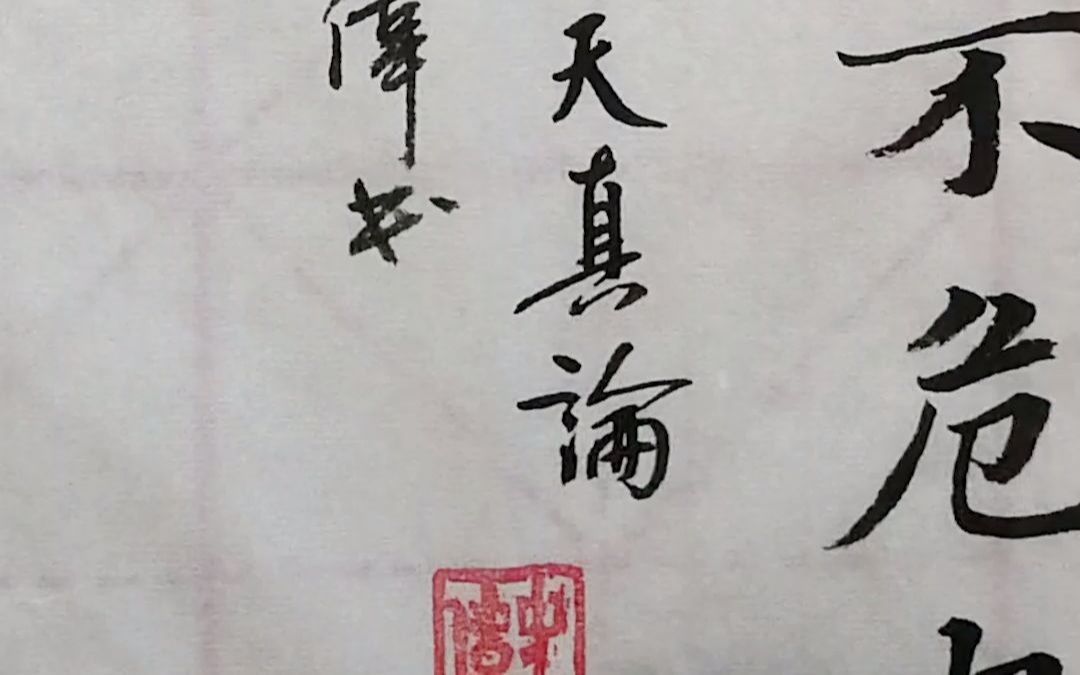 不危
天真論
偉书